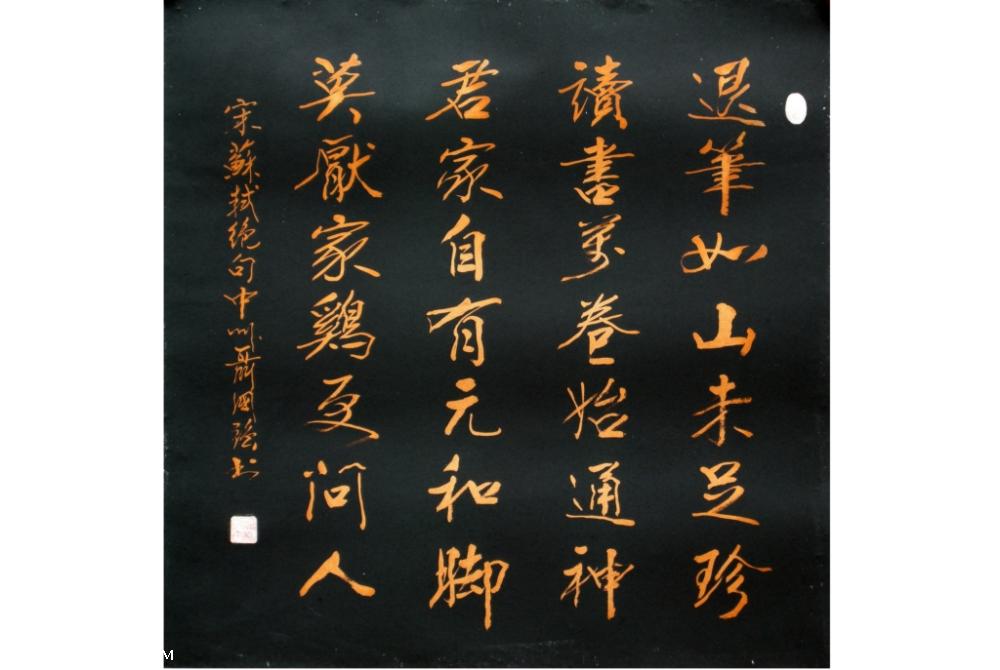 退筆如山未足珍
讀書萬卷始通神
君家自有元和脚
莫厭家鷄更問人
宋蘇軾绝句中州聶國强书
M